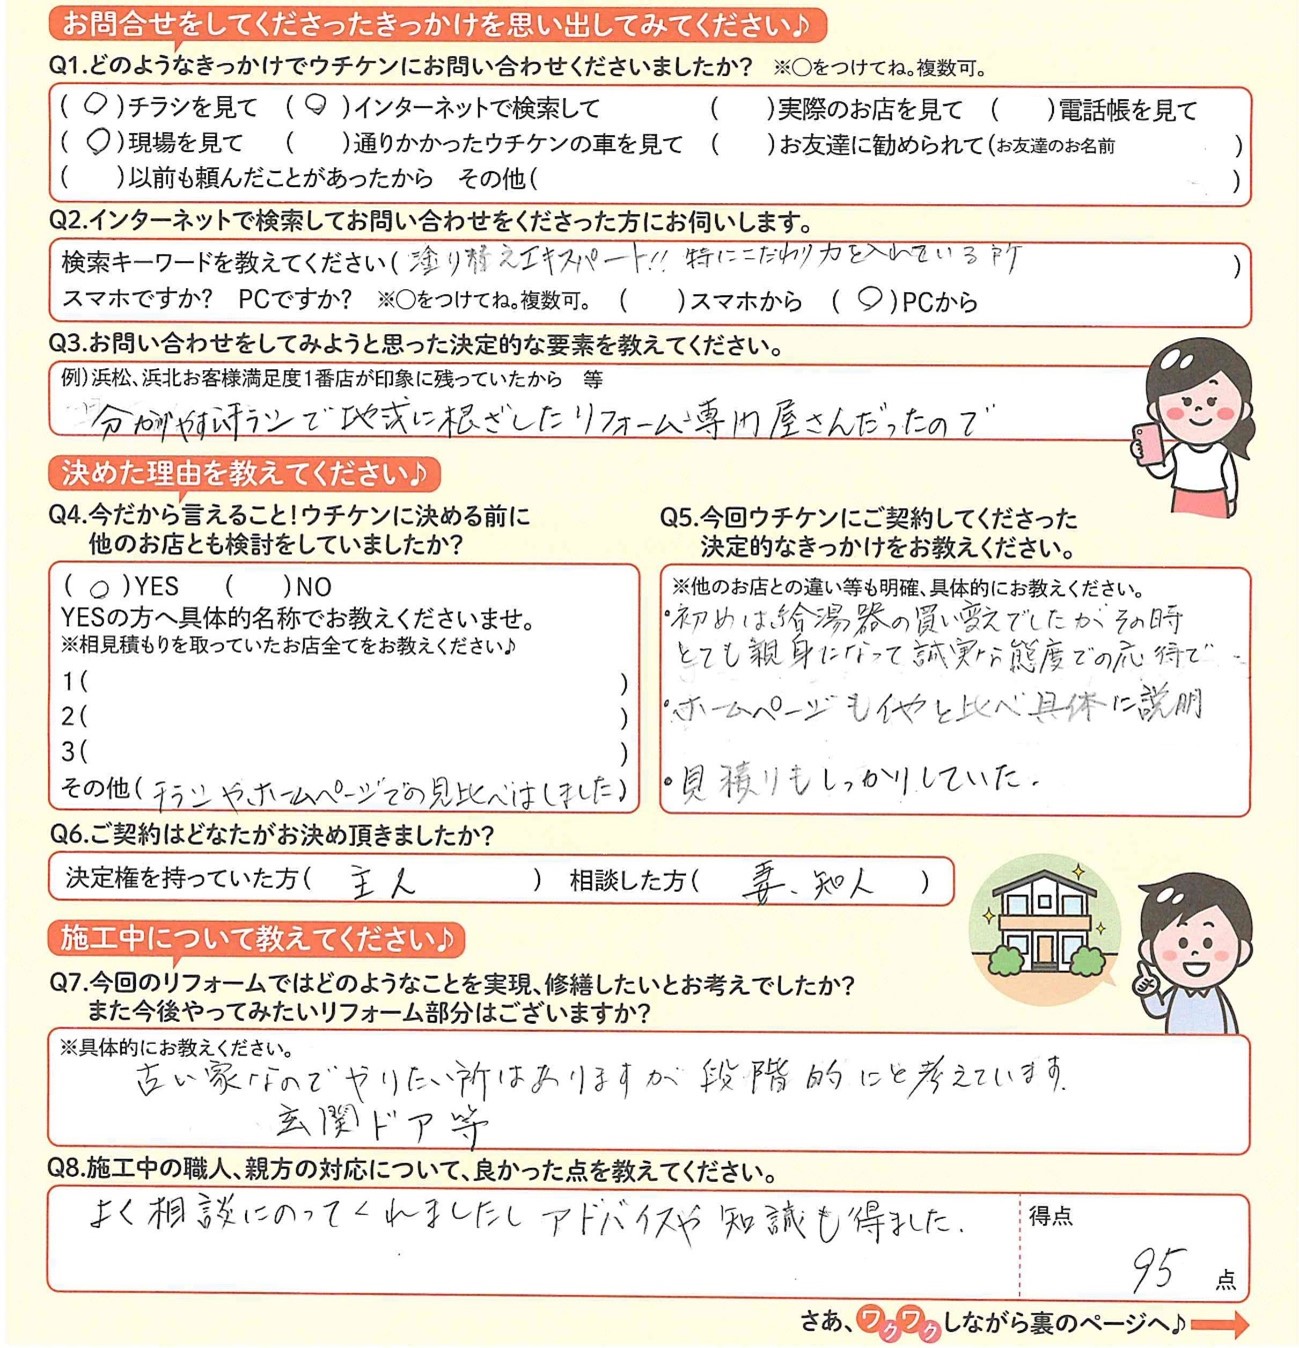 お問合せをしてくださったきっかけを思い出してみてください♪
Q1.どのようなきっかけでウチケンにお問い合わせくださいましたか? ※○をつけてね。複数可。
(○)チラシを見て (○)インターネットで検索して ( )実際のお店を見て ( )電話帳を見て
(○)現場を見て ( )通りかかったウチケンの車を見て ( )お友達に勧められて(お友達のお名前 )
( )以前も頼んだことがあったから その他( )
Q2.インターネットで検索してお問い合わせをくださった方にお伺いします。
検索キーワードを教えてください(塗り替えエキスパート!! 特にこだわり力を入れている所 )
スマホですか? PCですか? ※○をつけてね。複数可。 ( )スマホから (○)PCから
Q3.お問い合わせをしてみようと思った決定的な要素を教えてください。
例)浜松、浜北お客様満足度1番店が印象に残っていたから 等
分かりやすいチラシで地域に根ざしたリフォーム専門屋さんだったので
決めた理由を教えてください♪
Q4.今だから言えること!ウチケンに決める前に
他のお店とも検討をしていましたか?
(○)YES ( )NO
YESの方へ具体的名称でお教えくださいませ。
※相見積もりを取っていたお店全てをお教えください♪
1( )
2( )
3( )
その他(チラシやホームページでの見比べはしました)
Q5.今回ウチケンにご契約してくださった
決定的なきっかけをお教えください。
※他のお店との違い等も明確、具体的にお教えください。
・初めは給湯器の買い変えでしたがその時
とても親身になって誠実な態度での応待で
・ホームページも他と比べ具体に説明
・見積りもしっかりしていた.
Q6.ご契約はどなたがお決め頂きましたか?
決定権を持っていた方( 主人 ) 相談した方( 妻、知人 )
施工中について教えてください♪
Q7.今回のリフォームではどのようなことを実現、修繕したいとお考えでしたか?
また今後やってみたいリフォーム部分はございますか?
※具体的にお教えください。
古い家なのでやりたい所はありますが段階的にと考えています.
玄関ドア等
Q8.施工中の職人、親方の対応について、良かった点を教えてください。
よく相談にのってくれましたしアドバイスや知識も得ました.
得点
95点
さあ、ワクワクしながら裏のページへ♪